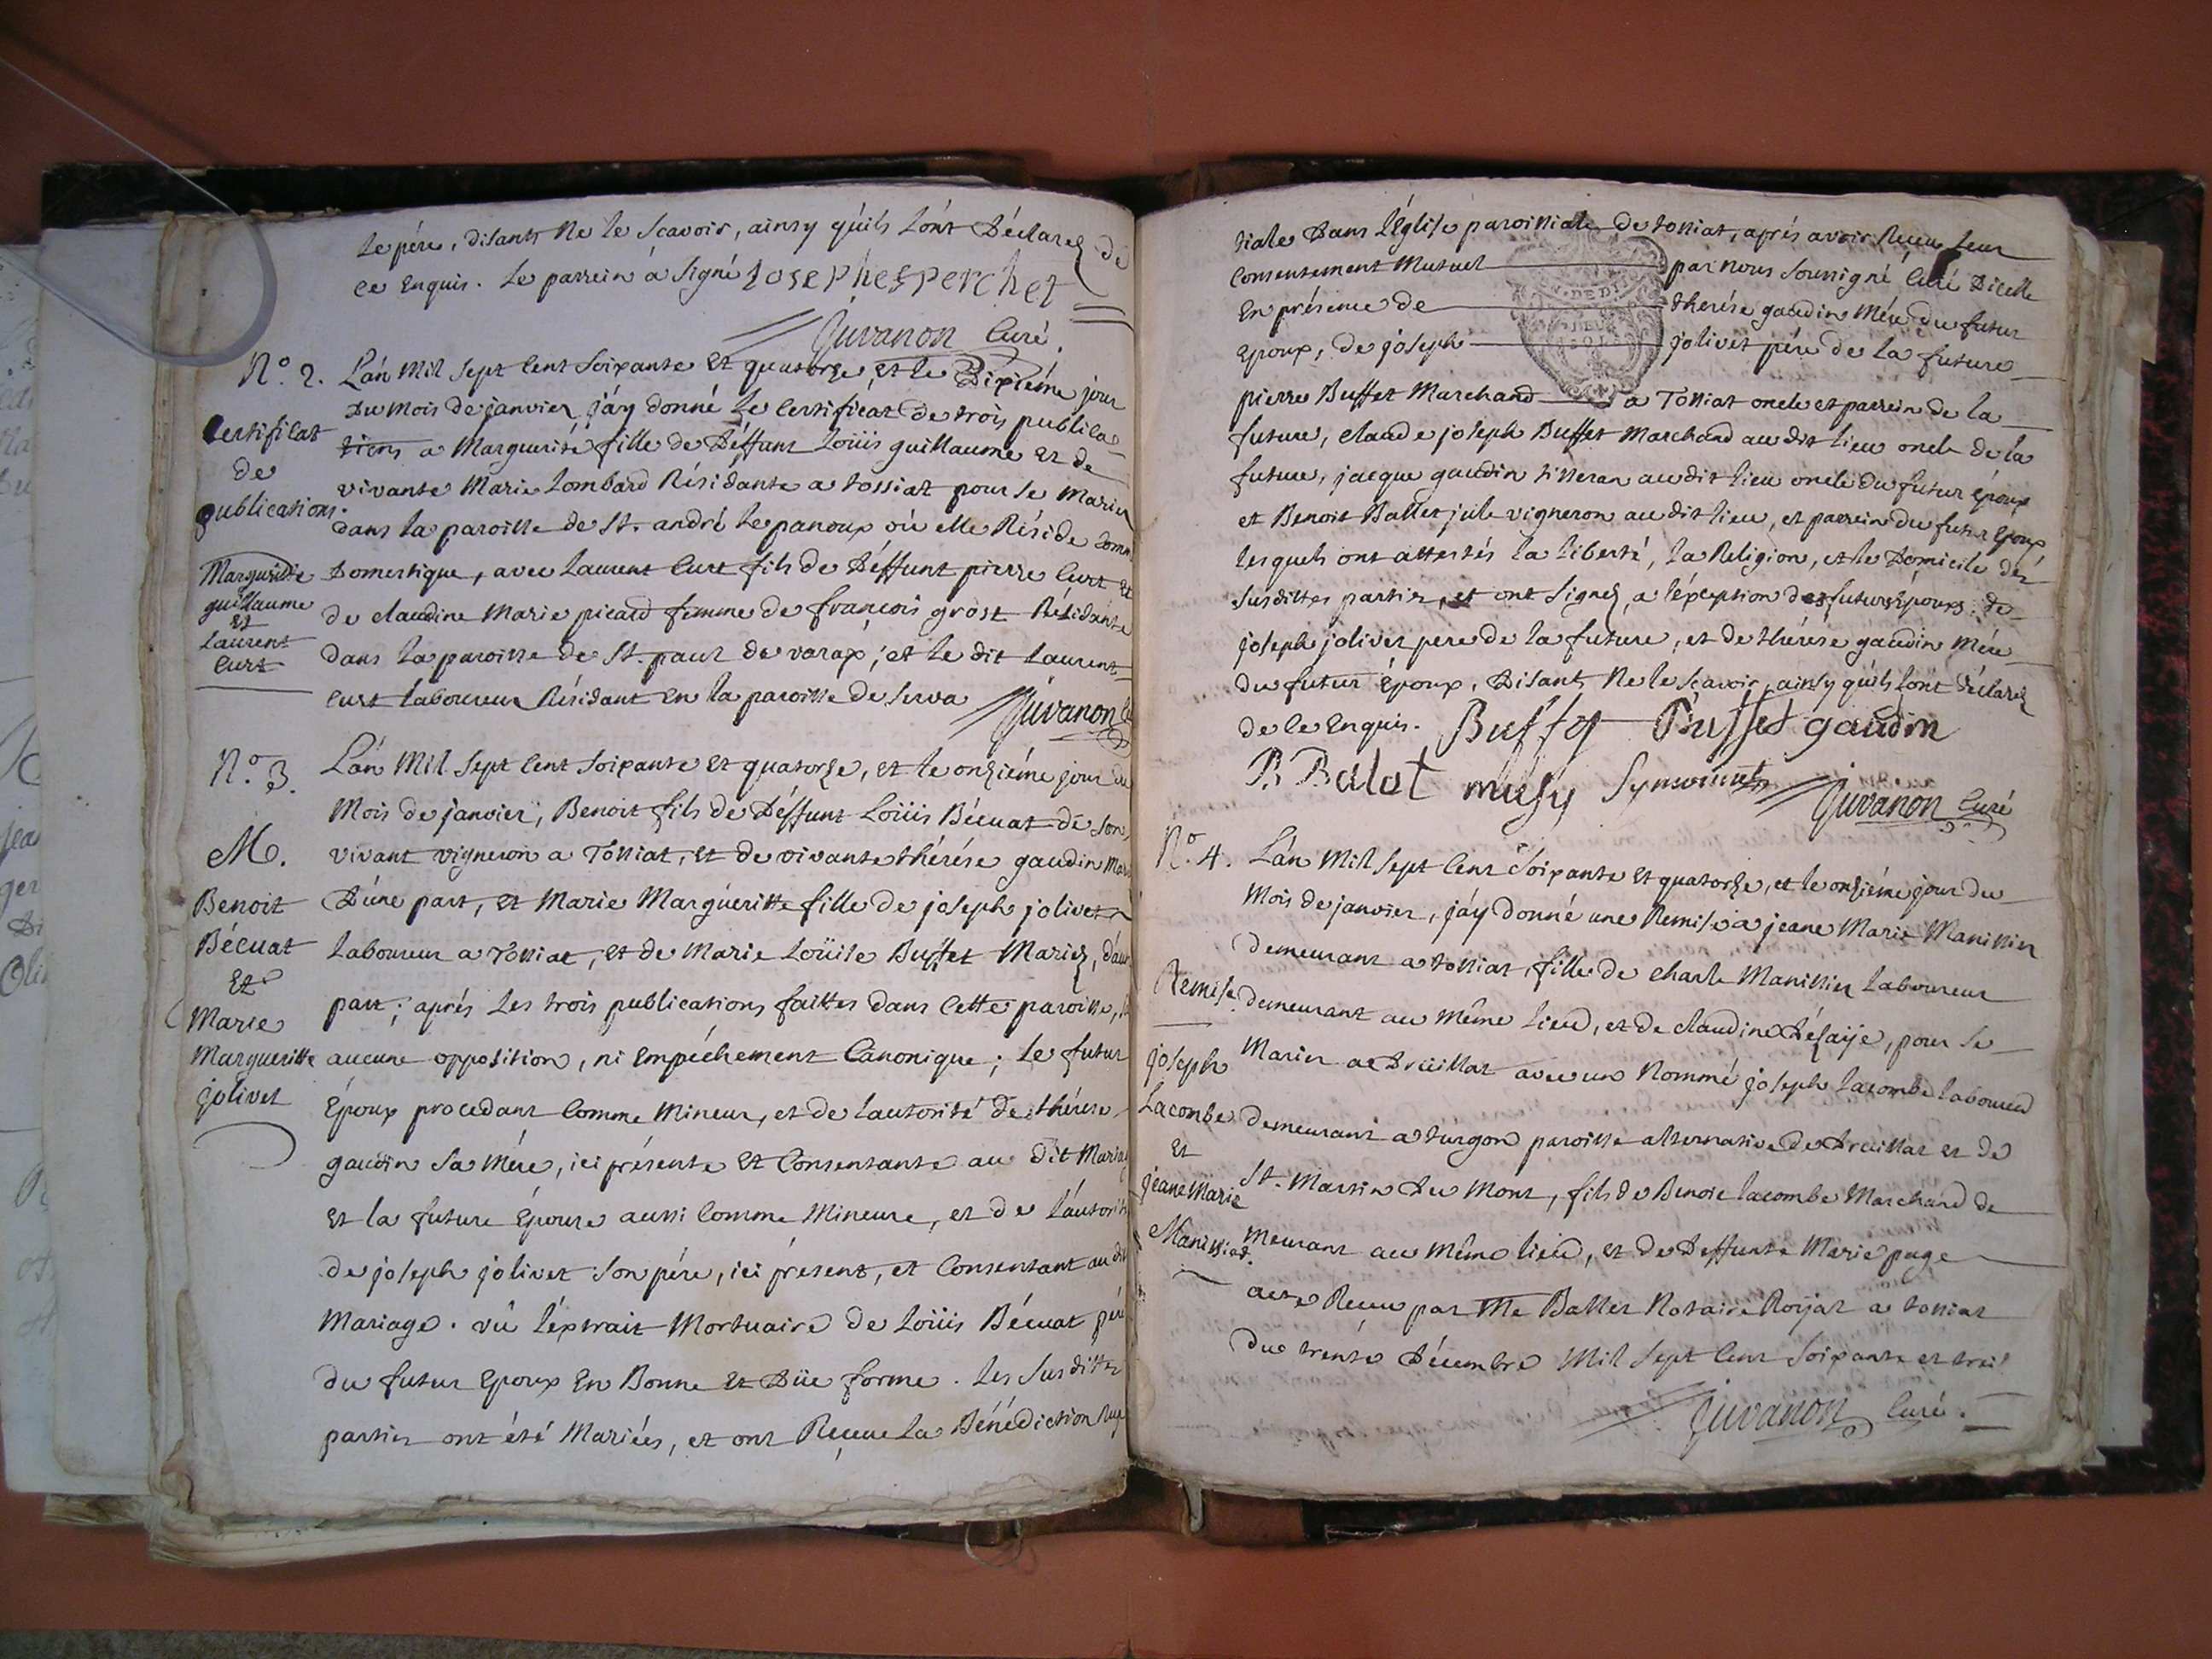 le pére, disants ne le scavoir, ainsy qúils lońt déclarez de
ce enquis. le parrein á signé Josephesperchet
Juvanon Curé.
N.o 2. Lán mil sept cent soixante et quatorze, et le dixiéme jour
du mois de janvier jáÿ donné le certificat de trois publica-
Certificat
de
publications.
tions a Marguerite fille de déffunt Loüis guillaume et de
vivante Marie Lombard Résidante a tossiat pour se marier
dans la paroisse de St. andré le panoux où elle Réside comme
Marguerite
guillaume
et
Laurent
Curt
Domestique, avec Laurent Curt fils de déffunt pierre Curt et
de claudine Marie picard femme de françois grost Résidante
dans la paroisse de St. paul de varax; et le dit Laurent
Curt laboureur Résidant en la paroisse de serva Juvanon
N.o 3. Lán mil sept cent soixante et quatorze, et le onziéme jour du
mois de janvier, Benoit fils de déffunt Loüis Bécuat de son
M.
Benoit
Bécuat
et
Marie
Margueritte
jolivet
vivant vigneron a Tossiat, et de vivante thérése gaudin
dúne part, et Marie Margúeritte fille de joseph jolivet
laboureur a Tossiat, et de Marie Loüise Buffet Mariez, dáu
part; aprés les trois publications faittes dans cette paroisse,
aucune opposition, ni empéchement Canonique; le futur
époux procedant comme mineur, et de lautorité de thérese
gaudin sa mére, ici présente et consentante au dit mariage
et la future épouse aussi comme mineure, et de láutorité
de joseph jolivet son pére, ici présent, et consentant au dit
mariage. vû léxtrait mortuaire de Loüis Bécuat pére
du futur epoux en Bonne et düe forme. les susdittes
parties ont été mariées, et ont Reçeue la Bénédiction nup
tiale dans léglise paroissiale de tossiat, aprés avoir Receu leur
consentement mutuel par nous soussigné Curé dicelle
en présence de therése gaudin mére du futur
epoux, de joseph jolivet pére de la future
pierre Buffet Marchand a Tossiat oncle et parrein de la
future, claude joseph Buffet Marchand au dit lieu oncle de la
future, jacque gaudin tisseran au dit lieu oncle du futur époux
et Benoit Ballet jule vigneron au dit lieu, et parrein du futur epoux
lesquels ont attestés la liberté, la Religion, et le domicile des
susdittes parties, et ont signez, a léxception des futurs époux, de
joseph jolivet pere de la future, et de thérése gaudin mére
du futur époux, disants ne le scavoir, ainsy qúils lont déclarez
de ce enquis. Buffet Buffet gaudin
B Balet musy Juvanon Curé
N.o 4. Lán mil sept cent soixante et quatorze, et le onziéme jour du
mois de janvier, jáy donné une Remise a jeane Marie Manissier
demeurant a tossiat, fille de charle Manissier laboureur
Remise.
joseph
Lacombe
et
jeane Marie
Manissier.
demeurant au même lieu, et de claudine , pour se
marier a druillat avec un nommé joseph lacombe laboureur
demeurant a turgon paroisse alternative de druillat et de
St. Martin du Mont, fils de Benoit lacombe Marchand de
meurant au même lieu, et de deffunte Marie page
acte Receu par Me Ballet Notaire Roÿal a tossiat
du trente décembre mil sept cent soixante et trei
Juvanon Curé.